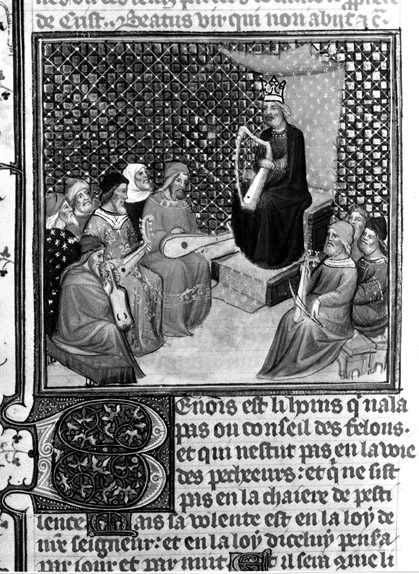 de Crist. Beatus vir qui non abijt &c.
Benois est li hons q' nala
pas ou conseil des felons.
et qui nestut pas en la voie
des pecheurs: et q̄ ne sist
pas en la chaiere de pesti
lence. Mais sa volente est en la loy de
nr̄e seigneur: et en la loy diceluy pensa
par iour et par nuit. Et il sera q̄me li